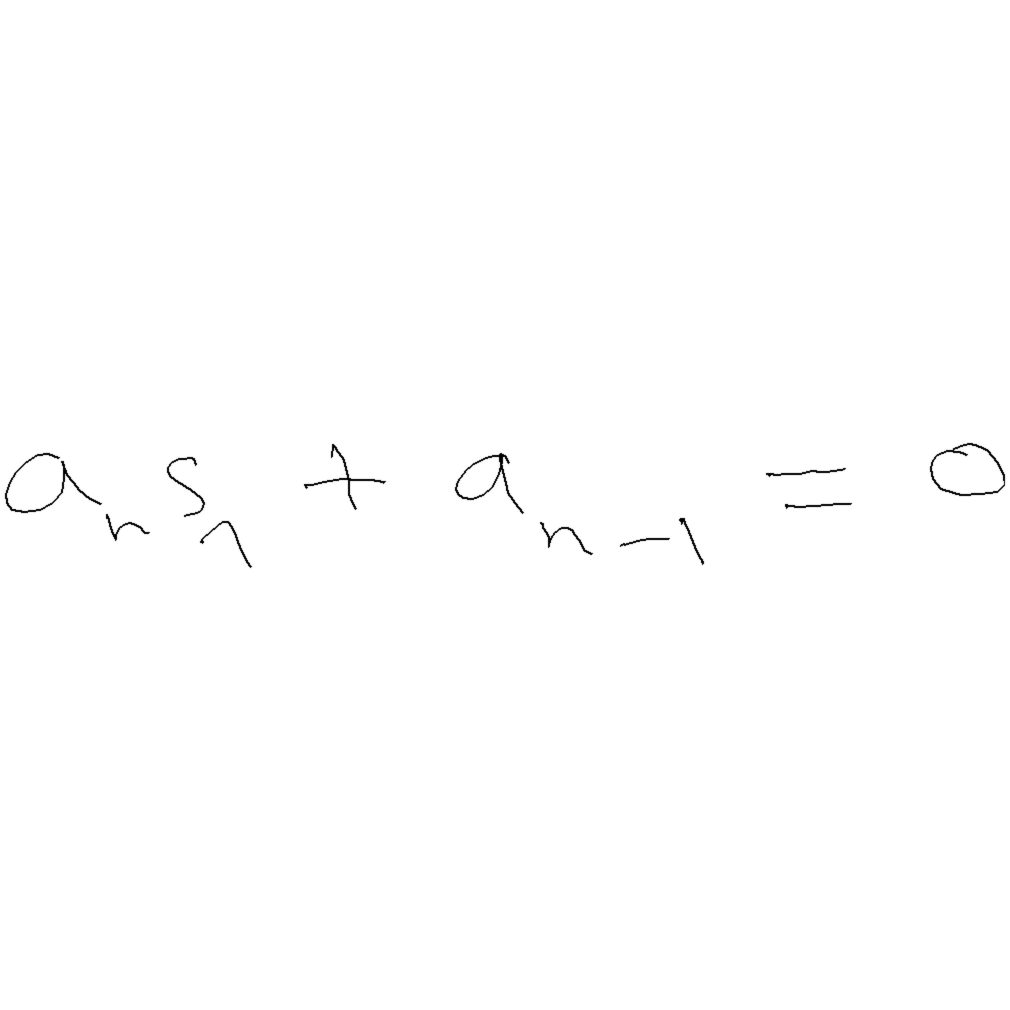 a_n s_1 + a_{n-1} = 0